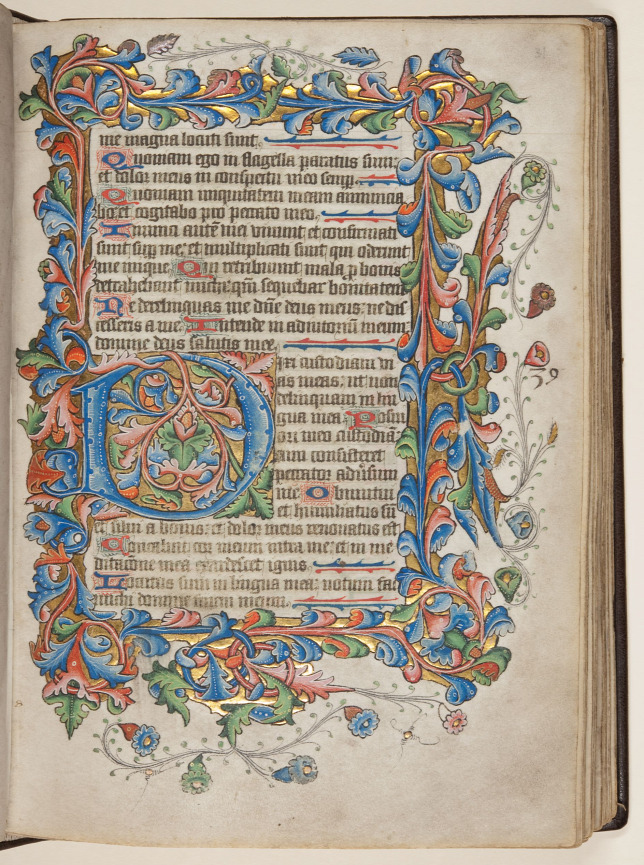 me magna locuti sunt.
Quoniam ego in flagella paratus sum:
et dolor meus in conspectu meo semp.
Quoniam iniquitatem meam annuncia
bo: et cogitabo pro peccato meo.
Inimici autē mei vivunt et confirmati
sunt sup me: et multiplicati sunt qui oderunt
me inique. Qui retribuunt mala ꝑ bonis
detrahebant michi: qm̄ sequebar bonitatem
Ne derelinquas me dn̄e deus meus: ne dis
cesseris a me. Intende in adiutorium meum:
domine deus salutis mee.
Dixi custodiam vi
as meas: ut non
delinquam in lin
gua mea. Posui
ori meo custodiā
cum consisteret
peccator adūsum
me. Obmutui
et humiliatus sū
et silui a bonis: et dolor meus renovatus est
Concaluit cor meum intra me: et in me
ditacione mea exardescet ignis.
Locutus sum in lingua mea: notum fac
michi domine finem meum.
39